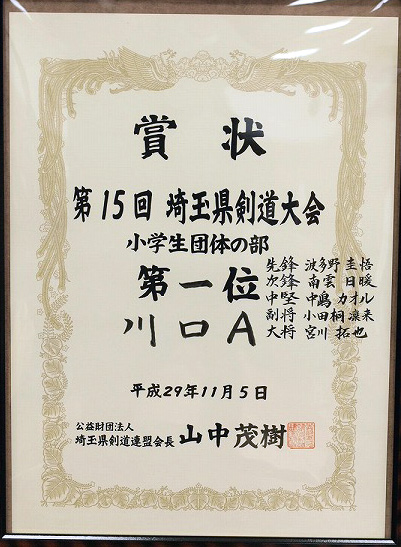 賞状
第15回 埼玉県剣道大会
小学生団体の部
第一位
川口A
先鋒 波多野 圭悟
次鋒 南雲 日暖
中堅 中嶋 カオル
副将 小田桐 凛来
大将 宮川 拓也
平成29年11月5日
公益財団法人
埼玉県剣道連盟会長 山中茂樹